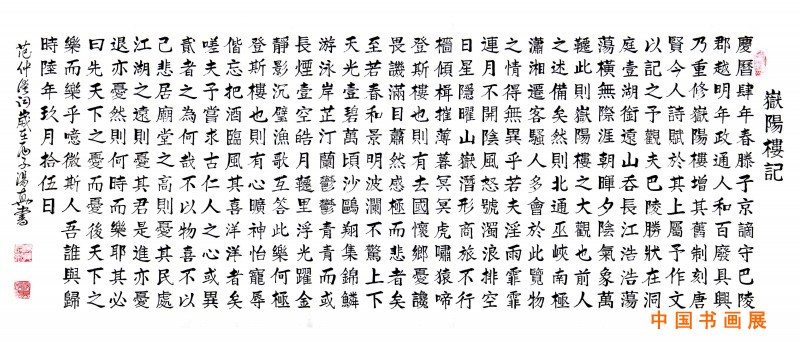 嶽陽樓記
慶曆肆年春滕子京謫守巴陵
郡越明年政通人和百廢具興
乃重修嶽陽樓增其舊制刻唐
賢今人詩賦於其上屬予作文
以記之予觀夫巴陵勝狀在洞
庭壹湖銜遠山吞長江浩浩蕩
蕩橫無際涯朝暉夕陰氣象萬
韆此則嶽陽樓之大觀也前人
之述備矣然則北通巫峽南極
瀟湘遷客騷人多會於此覽物
之情得無異乎若夫淫雨霏霏
連月不開陰風怒號濁浪排空
日星隱曜山嶽潛形商旅不行
檣傾楫摧薄暮冥冥虎嘯猿啼
登斯樓也則有去國懷鄉憂讒
畏譏滿目蕭然感極而悲者矣
至若春和景明波瀾不驚上下
天光壹碧萬頃沙鷗翔集錦鱗
游泳岸芷汀蘭鬱鬱青青而或
長煙壹空皓月韆里浮光躍金
靜影沉璧漁歌互答此樂何極
登斯樓也則有心曠神怡寵辱
偕忘把酒臨風其喜洋洋者矣
嗟夫予嘗求古仁人之心或異
貳者之為何哉不以物喜不以
己悲居廟堂之高則憂其民處
江湖之遠則憂其君是進亦憂
退亦憂然則何時而樂耶其必
曰先天下之憂而憂後天下之
樂而樂乎噫微斯人吾誰與歸
時陸年玖月拾伍日
范仲淹詞歲書
中国书画展